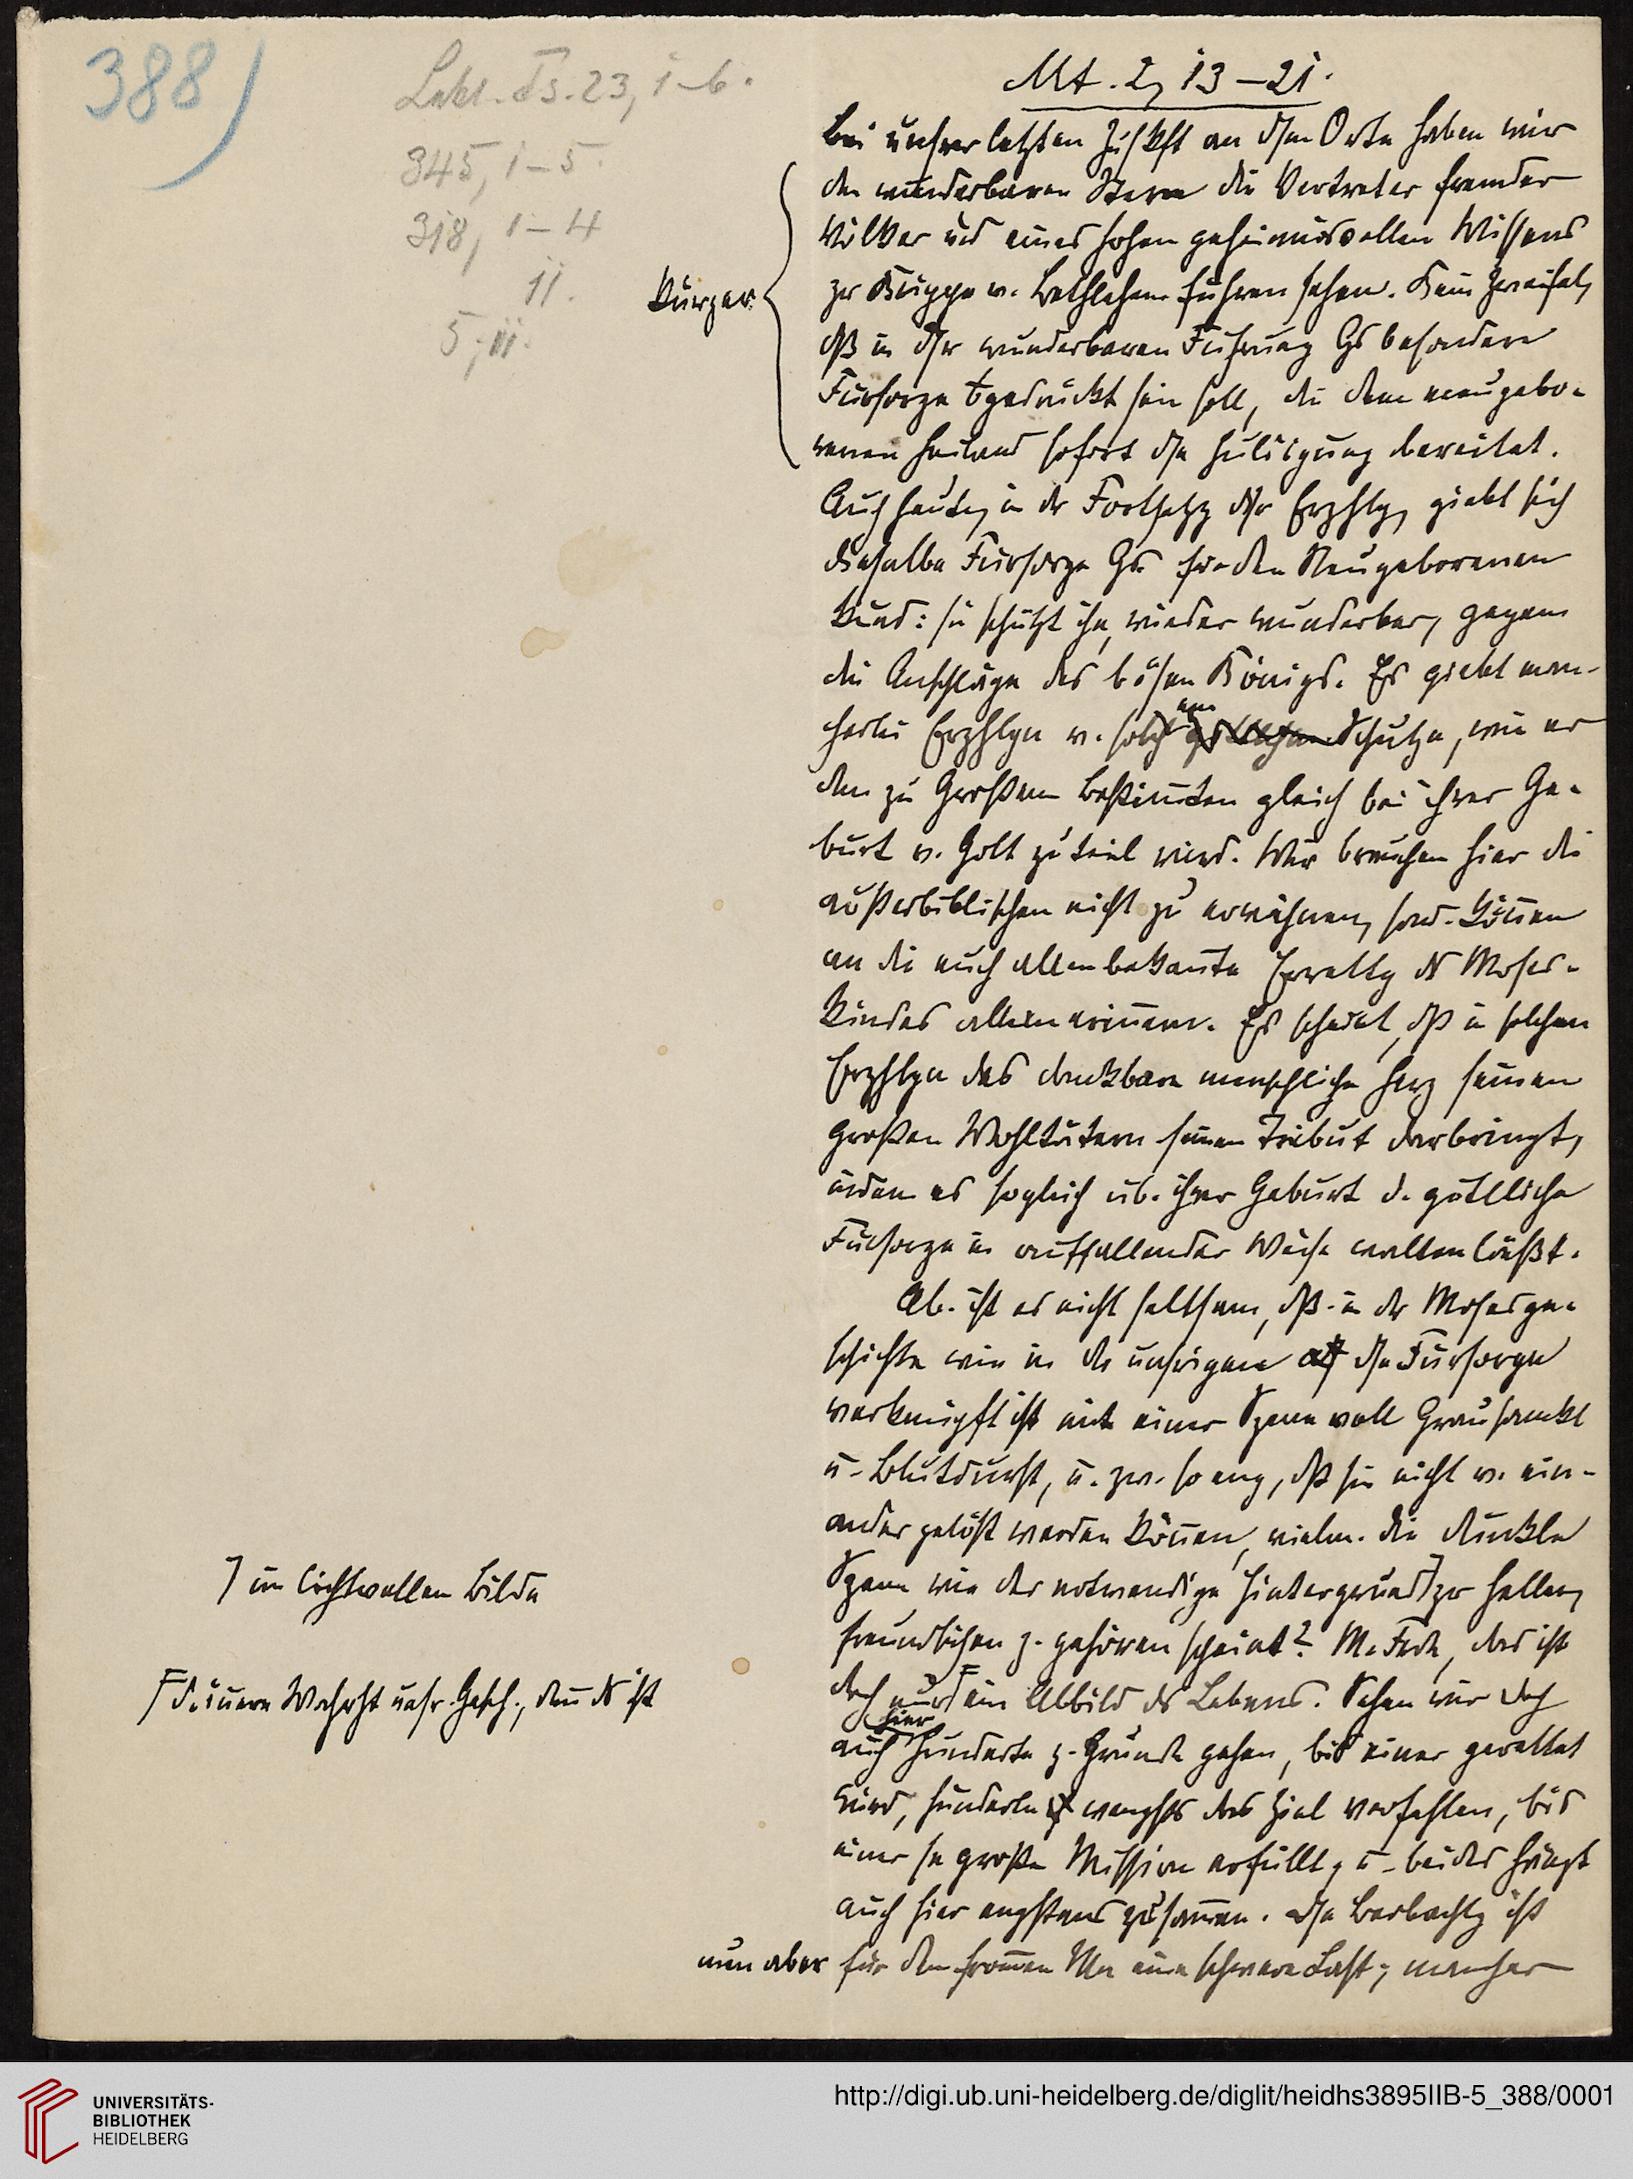 388)
Lekt. Js. 23, 1–6.
345, 1–5.
318, 1–4
11.
5, 11.
Mt. 2, 13–21.
Bei unsrer letzten Zuskft an dsm Orte haben wir
den wunderbaren Stern die Vertreter fremder
Völker und eines hohen geheimnisvollen Wissens
zr Krippe v. Bethlehem führen sehen. Kein Zweifel,
dß in dsr wunderbaren Führung Gs besondere
Fürsorge gedrückt sein soll, die dem neugebo-
renen Heiland sofort dse Huldigung bereitet.
Kürzer
Auch heute, in dr Fortsetzg dsr Erzhlg, giebt sich
dieselbe Fürsorge Gs für den Neugeborenen
kund: sie schützt ihn, wieder wunderbar, gegen
die Anschläge des bösen Königs. Es giebt man-
cherlei Erzhlgn v. solch em Schutze, wie er
den zu Großem Bestim̄ten gleich bei ihrer Ge-
burt v. Gott zuteil wird. Wir brauchen hier die
außerbiblischen nicht zu erwähnen, sond. kön̄en
an die euch allen bekan̄te Errettg ds Moses-
kindes allein erin̄ern. Es scheint, dß in solchen
Erzhlgn das dankbare menschliche Herz seinen
großen Wohltätern seinen Tribut darbringt,
indem es sogleich üb. ihrer Geburt d. göttliche
Fürsorge in auffallender Weise walten läßt.
Ab. ist es nicht seltsam, dß in dr Mosesge-
schichte wie in dr unsrigen dse Fürsorge
verknüpft ist mit einer Szene voll Grausamkt
u. Blutdurst, u. zw. so eng, dß sie nicht v. ein-
ander gelöst werden kön̄en, vielm. die dunkle
Szene wie der notwendige Hintergrund ⁊ zr hellen,
⁊ im lichtvollen Bilde
freundlichen z. gehören scheint? M. Frde, das ist
doch nur ein Abbild ds Lebens. Sehen wir doch
d. in̄ere Wahrht unsr. Gesch., den̄ ds ist
auch hier Hunderte z. Grunde gehen, bis einer gerettet
wird, Hunderte das Ziel verfehlen, bis
einer se große Mission erfüllt, u. beides hängt
auch hier engstens zusam̄en. Dse Beobachtg ist
nun aber für den from̄en Mn eine schwere Last; mancher
UNIVERSITÄTS-
BIBLIOTHEK
HEIDELBERG
http://digi.ub.uni-heidelberg.de/diglit/heidhs3895IIB-5_388/0001